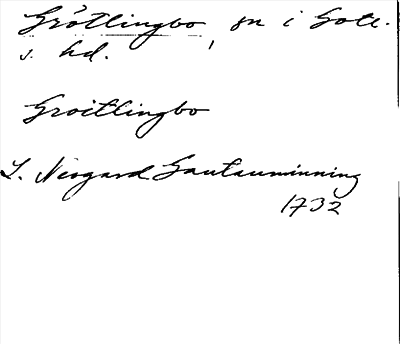 Grötlingbo, sn i Gotl.
s. hd.
Groitlingbo
L. Neogard Gautauminning
1732